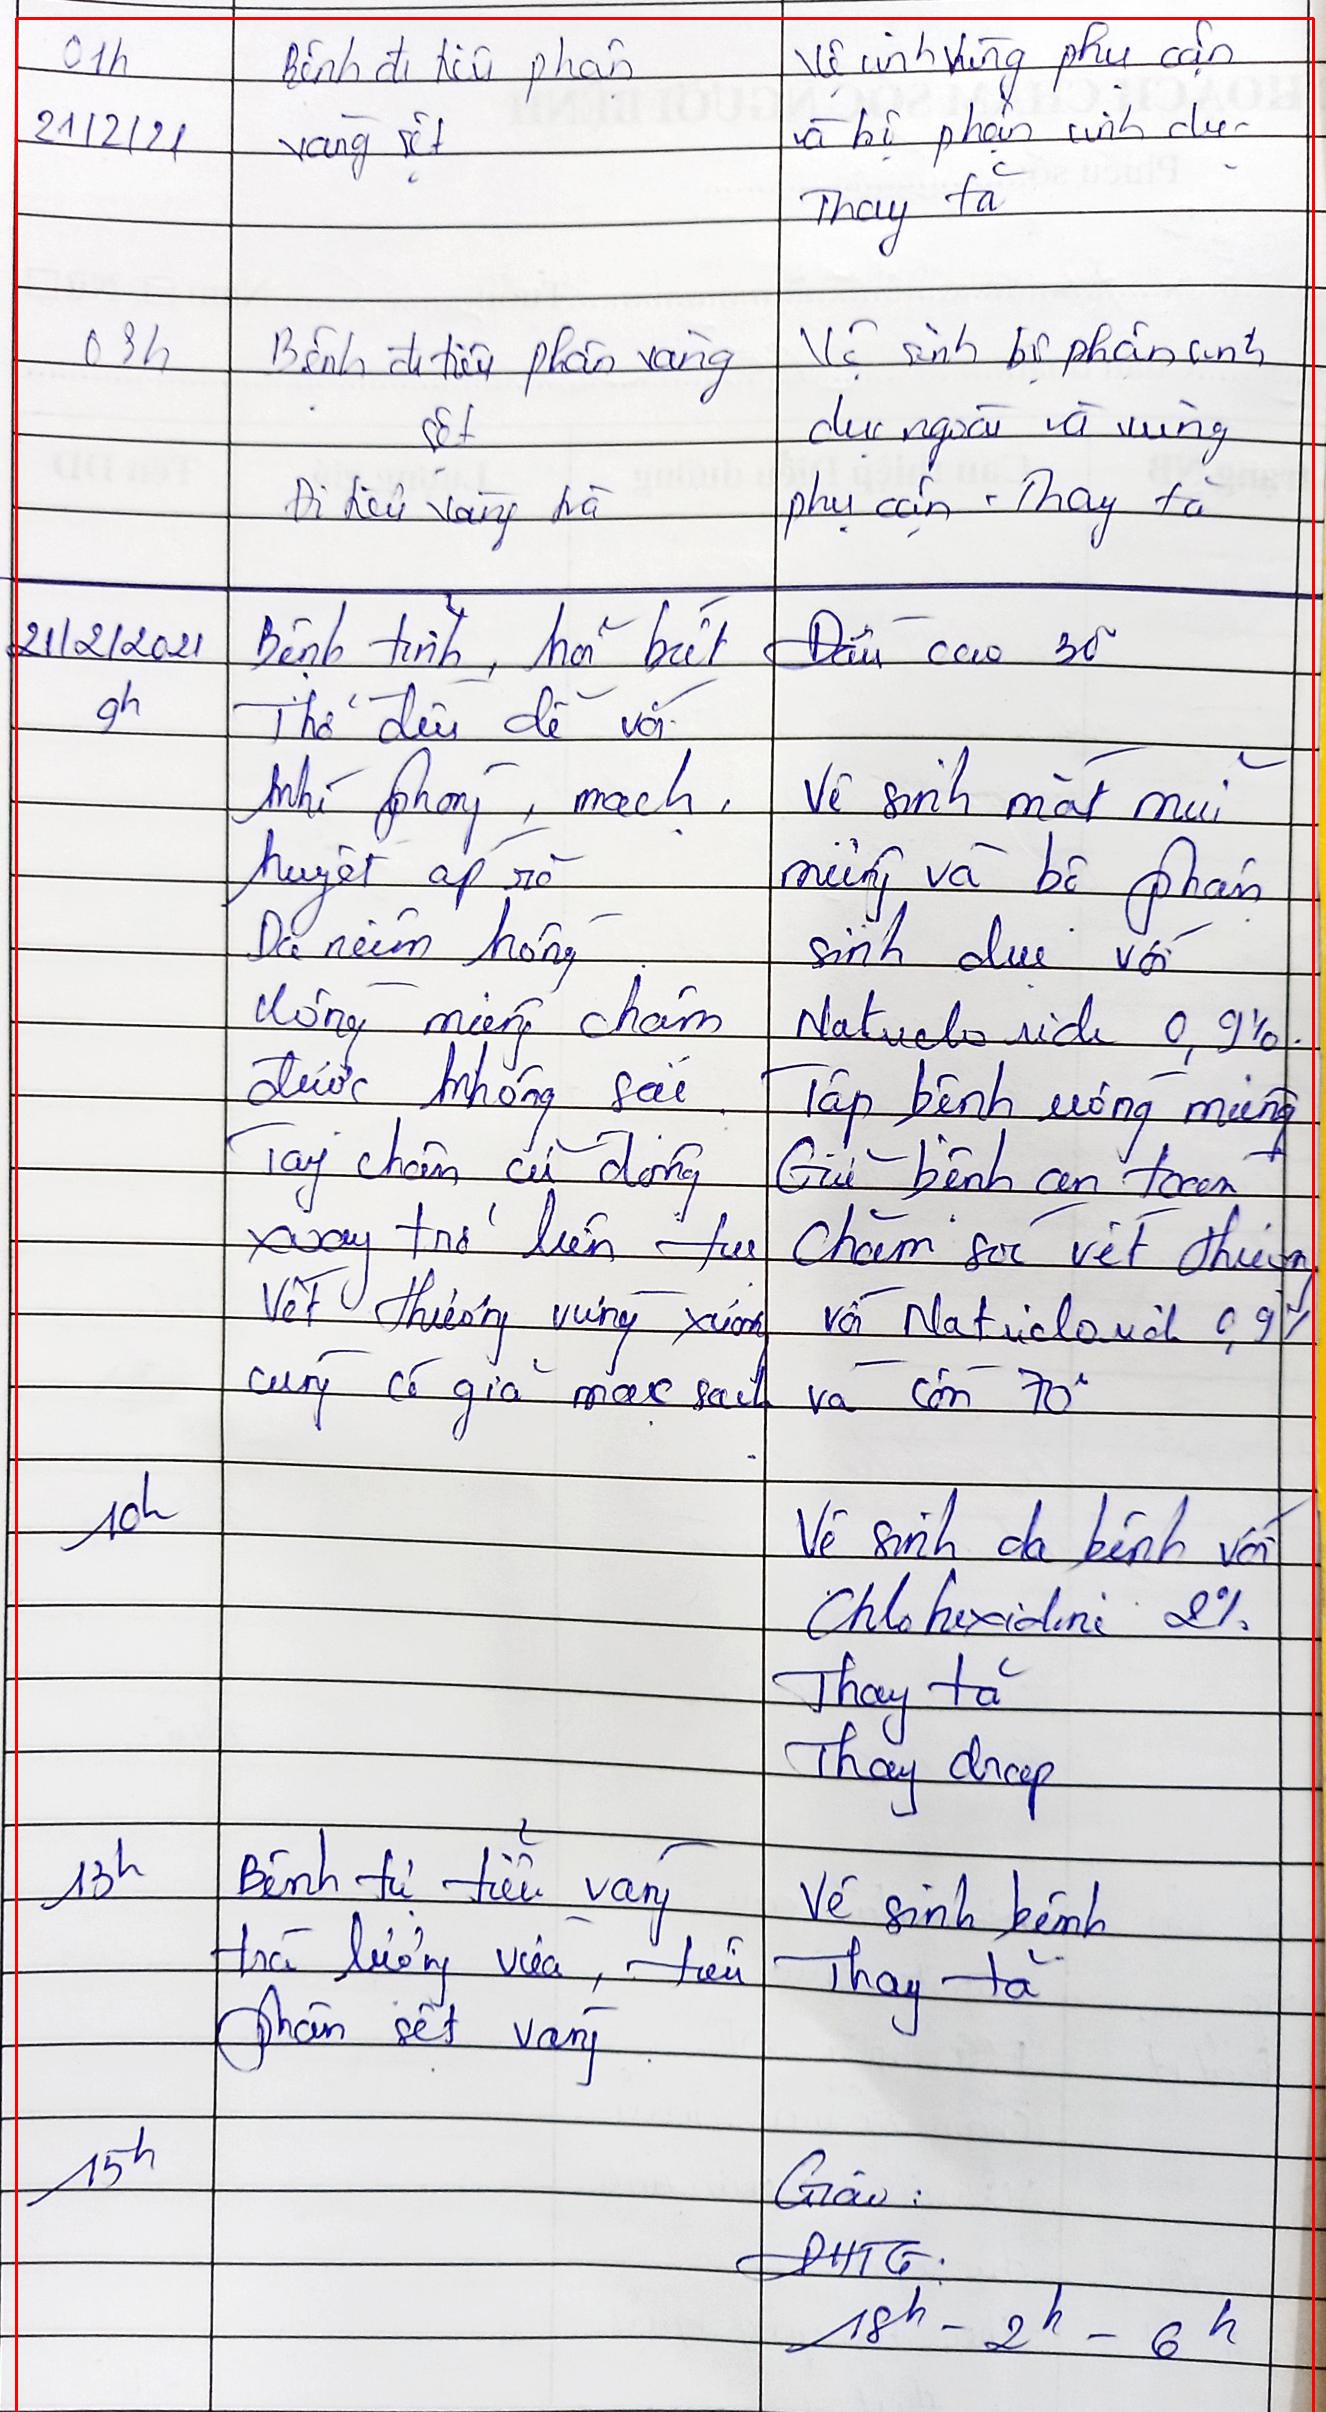 01h
21/2/21
Bệnh đi tiêu phân
vàng sệt
Vệ sinh vùng phụ cận
và bộ phận sinh dục
Thay tã
03h
Bệnh đi tiêu phân vàng
sệt
Đi tiểu vàng trà
Vệ sinh bộ phận sinh
dục ngoài và vùng
phụ cận. Thay tã
21/2/2021
9h
Bệnh tỉnh, hỏi biết
Thở đều dễ với
khí phòng, mạch,
huyết áp rõ
Da niêm hồng
đồng miệng chậm
được không sặc
Tay chân cử động
xoay trở liên tục
Vết thương vùng xương
cùng có giả mạc sạch
Đầu cao 30°
Vệ sinh mắt mũi
miệng và bộ phận
sinh dục với
Natriclorid 0,9%.
Tập bệnh uống miệng
Giữ bệnh an toàn
Chăm sóc vết thương
với Natriclorid 0,9%
và cồn 70°
10h
Vệ sinh da bệnh với
Chlohexidine 2%
Thay tã
Thay drap
13h
Bệnh tự tiểu vàng
trà lượng vừa, tiêu
phân sệt vàng
Vệ sinh bệnh
Thay tã
15h
Giao:
ĐHTG:
18h - 2h - 6h